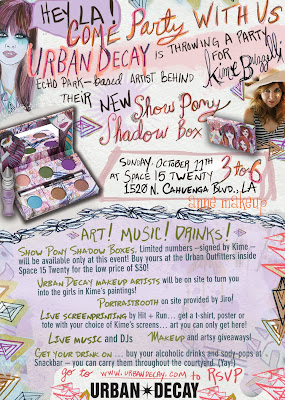 HEY LA!
COME PARTY WITH US
URBAN DECAY IS THROWING A PARTY
FOR
ECHO PARK-BASED ARTIST BEHIND
Kime Buzzelli
THEIR NEW Show Pony
Shadow Box
SUNDAY, OCTOBER 11TH
3 to 6
AT SPACE 15 TWENTY
1520 N. CAHUENGA BLVD., LA
anne makeup
ART! MUSIC! DRINKS!
SHOW PONY SHADOW BOXES. Limited numbers –signed by Kime –
will be available only at this event! Buy yours at the Urban Outfitters inside
Space 15 Twenty for the low price of $30!
URBAN DECAY MAKEUP ARTISTS will be on site to turn you
into the girls in Kime's paintings!
PORTRAITBOOTH on site provided by Jiro!
LIVE SCREENPRINTING by Hit + Run... get a t-shirt, poster or
tote with your choice of Kime's screens... art you can only get here!
LIVE MUSIC and DJs MAKEUP and artsy giveaways!
GET YOUR DRINK ON ... buy your alcoholic drinks and sody-pops at
Snackbar – you can carry them throughout the courtyard. (Yay!)
go to www.urbandecay.com to RSVP
URBAN DECAY